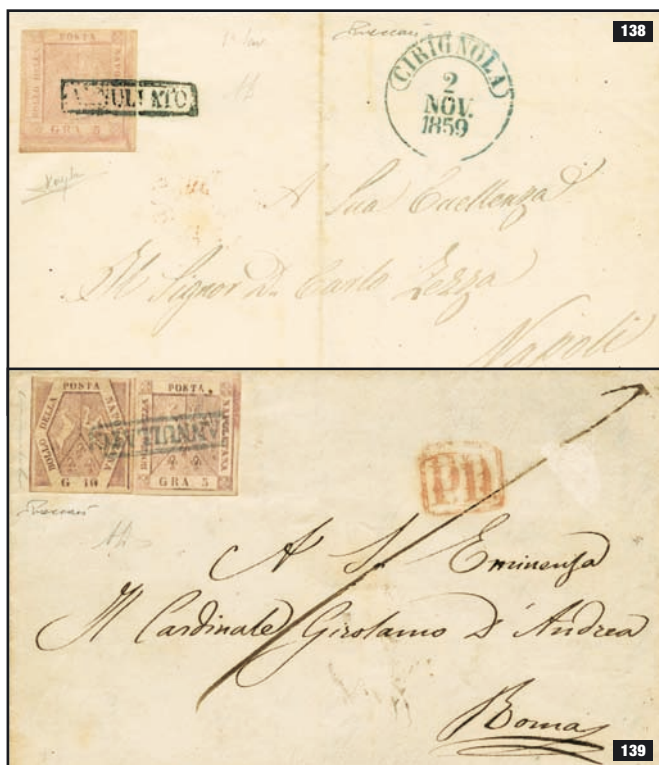 138
POSTA
BOLLO DELLA
GRA 5
ANNULLATO
CIRIGNOLA
2
NOV.
1859
A Sua Eccellenza
Il Signor D. Carlo Zezza
Napoli
POSTA
BOLLO DELLA
NAPOLETANA
G 10
POSTA
BOLLO DELLA
NAPOLETANA
GRA 5
ANNULLATO
PD
A S. Eminenza
Il Cardinale Girolamo D'Andrea
Roma
139